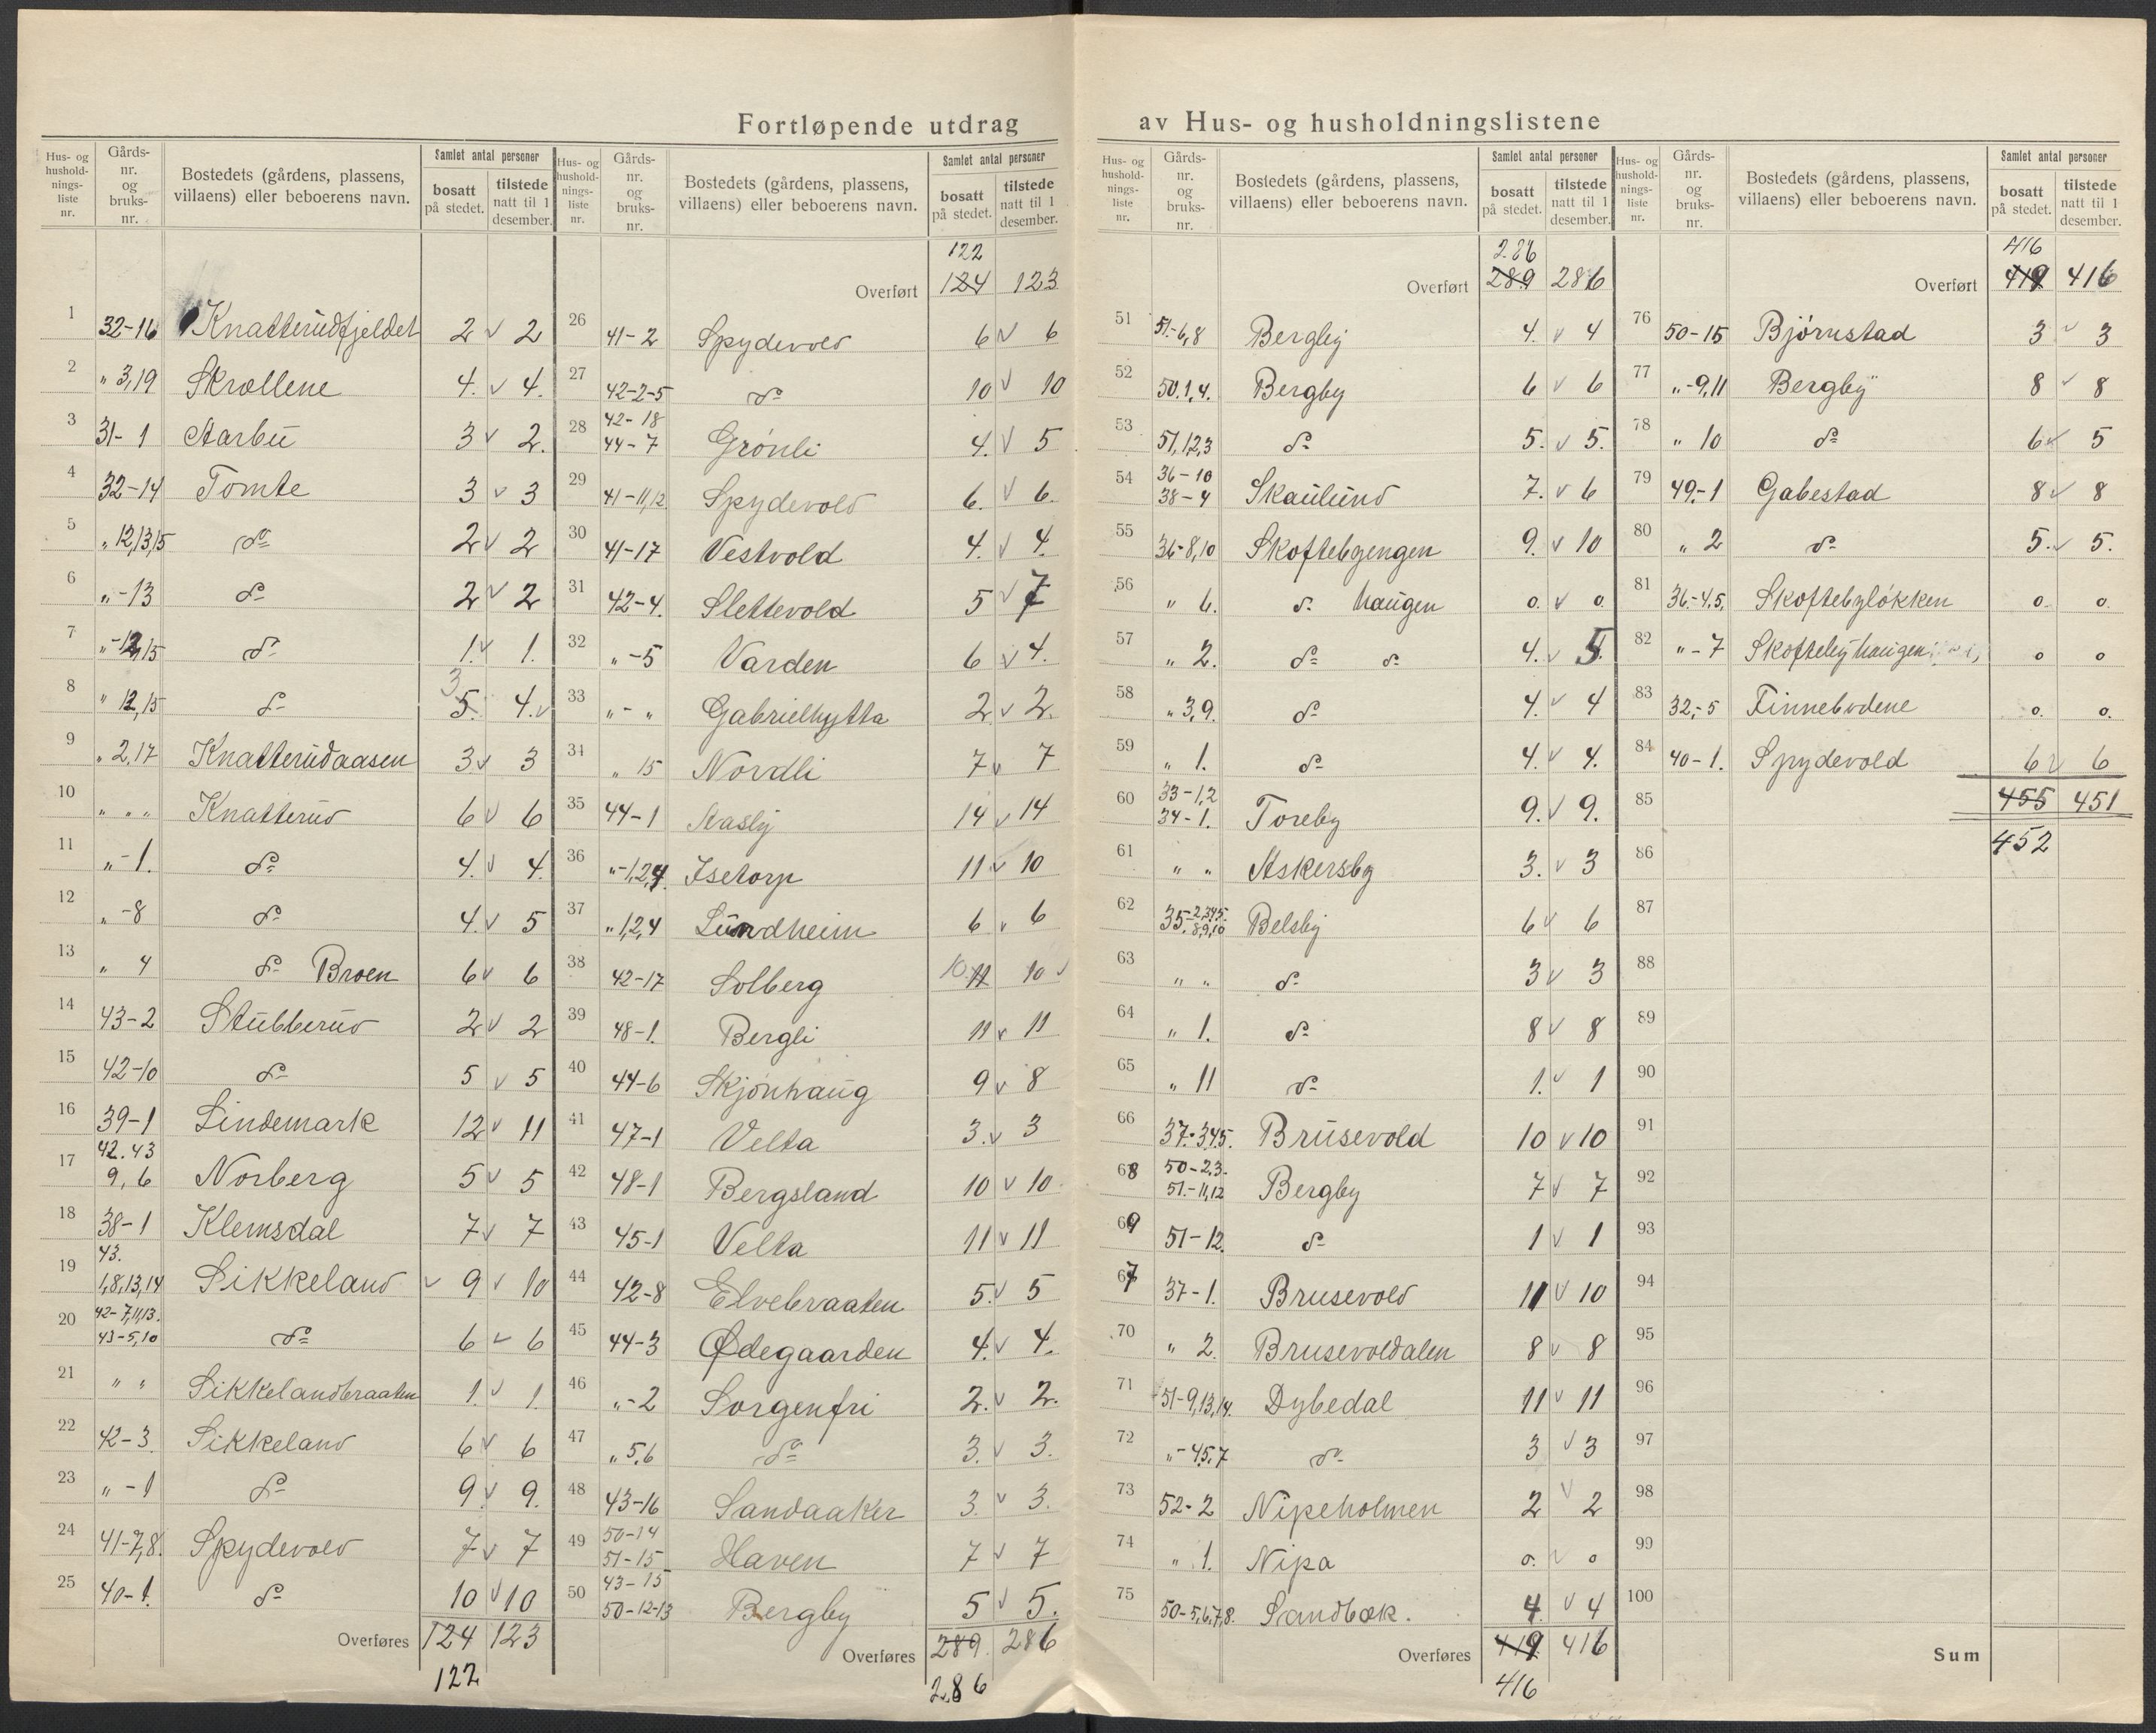 Fortløpende utdrag av Hus- og husholdningslistene
Hus- og husholdnings-liste nr. Gårds-nr. og bruks-nr. Bostedets (gårdens, plassens, villaens) eller beboerens navn. Samlet antal personer bosatt på stedet. tilstede natt til 1 desember.
1 32-16 Knatterudfjeldet 2 v 2
2 " 3,19 Skrællene 4. v 4.
3 31-1 Aarbu 3 v 2.
4 32-14 Tomte 3 v 3
5 " 12,13,15 do 2 v 2
6 "-13 do 2 v 2
7 "-12,15 do 1. v 1.
8 " 12,15 do 3 5. 4. v
9 " 2,17 Knatterudaasen 3 v 3
10 " " " Knatterud 6 v 6
11 "-1. do 4. v 4.
12 "-8 do 4. v 5
13 " 4 do Broen 6 v 6
14 43-2 Stubberud 2 v 2
15 42-10 do 5 v 5
16 39-1 Lindemark 12 v 11
17 42.43 9,6 Norberg 5 v 5
18 38-1 Klemsdal 7 v 7
19 43. 1,8,13,14 Sikkeland v 9 v 10
20 42-7,11,13. 43-5,10 do 6 v 6
21 " " Sikkelandbraaten 1. v 1.
22 42-3. Sikkeland 6 v 6
23 "-1 do 9 v 9.
24 41-7,8. Spydevold 7 v 7
25 40-1. do 10 v 10
Overføres 124 123
122
Hus- og husholdnings-liste nr. Gårds-nr. og bruks-nr. Bostedets (gårdens, plassens, villaens) eller beboerens navn. Samlet antal personer bosatt på stedet. tilstede natt til 1 desember.
122
Overført 124 123
26 41-2 Spydevold 6 v 6
27 42-2-5 do 10 v 10
28 42-18 44-7 Grønli 4. v 5
29 41-11,12 Spydevold 6. v 6.
30 41-17 Vestvold 4. v 4.
31 42-4. Slettevold 5 v 7
32 "-5 Varden 6 v 4.
33 "-" Gabrielhytta 2 v 2.
34 " 15 Nordli 7 v 7
35 44-1 Aasly 14 v 14
36 "-1,2,4. Isetorp 11 v 10
37 " 1,2,4 Lundheim 6 v 6
38 42-17 Solberg 10. 11 10 v
39 48-1. Bergli 11 v 11
40 44-6 Skjønhaug 9 v 8
41 47-1 Velta 3. v 3
42 48-1 Bergsland 10 v 10
43 45-1 Velta 11 v 11
44 42-8 Elvebraaten 5. v 5
45 44-3 Ødegaarden 4. v 4.
46 "-2 Sorgenfri 2. v 2.
47 " 5,6 do 3. v 3.
48 43-16 Sandaaker 3. v 3.
49 50-14 51-15 Haven 7 v 7
50 43-15 50-12-13 Bergby 5 v 5.
Overføres 289. 286
286
Hus- og husholdnings-liste nr. Gårds-nr. og bruks-nr. Bostedets (gårdens, plassens, villaens) eller beboerens navn. Samlet antal personer bosatt på stedet. tilstede natt til 1 desember.
286
Overført 289 286
51 51-6,8 Bergby 4. v 4
52 50.1,4. Bergby 6 v 6
53 51,1,2,3 do 5. v 5.
54 36-10 38-4 Skaulund 7. v 6
55 36-8,10 Skoftebyengen 9. v 10
56 " 6. do haugen 0. v 0.
57 " 2. do do 4. v 5.
58 " 3,9. do 4. v 4
59 " 1. do 4. v 4.
60 33-1,2 34-1. Toreby 9. v 9.
61 " " Askersby 3. v 3
62 35-2,3,4,5. 8,9,10 Belsby 6 v 6
63 " " do 3 v 3
64 " 1. do 8 v 8
65 " 11 do 1. v 1
66 37-3,4,5. Brusevold 10 v 10
68 50-2,3. 51-11,12 Bergby 7 v 7
69 51-12. do 1 v 1
67 37-1. Brusevold 11 v 10
70 " 2. Brusevoldalen 8 v 8
71 51-9,13,14. Dybedal 11 v 11
72 "-4,5,7 do 3 v 3
73 52-2 Nipeholmen 2 v 2
74 " 1. Nipa 0. v 0
75 50-5,6,7,8. Sandbæk. 4. v 4
Overføres 419 416
416
Hus- og husholdnings-liste nr. Gårds-nr. og bruks-nr. Bostedets (gårdens, plassens, villaens) eller beboerens navn. Samlet antal personer bosatt på stedet. tilstede natt til 1 desember.
416
Overført 419 416
76 50-15 Bjørnstad 3 v 3
77 "-9,11 Bergby 8 v 8
78 " 10 do 6 v 5
79 49-1 Gabestad 8 v 8
80 " 2 do 5. v 5.
81 36-4,5. Skoftebyløkken 0. 0.
82 "-7 Skoftebyhaugen 0 0
83 32,-5 Finnebodene 0. 0.
84 40-1. Spydevold 6 v 6
85 455 451
452
86
87
88
89
90
91
92
93
94
95
96
97
98
99
100
Sum